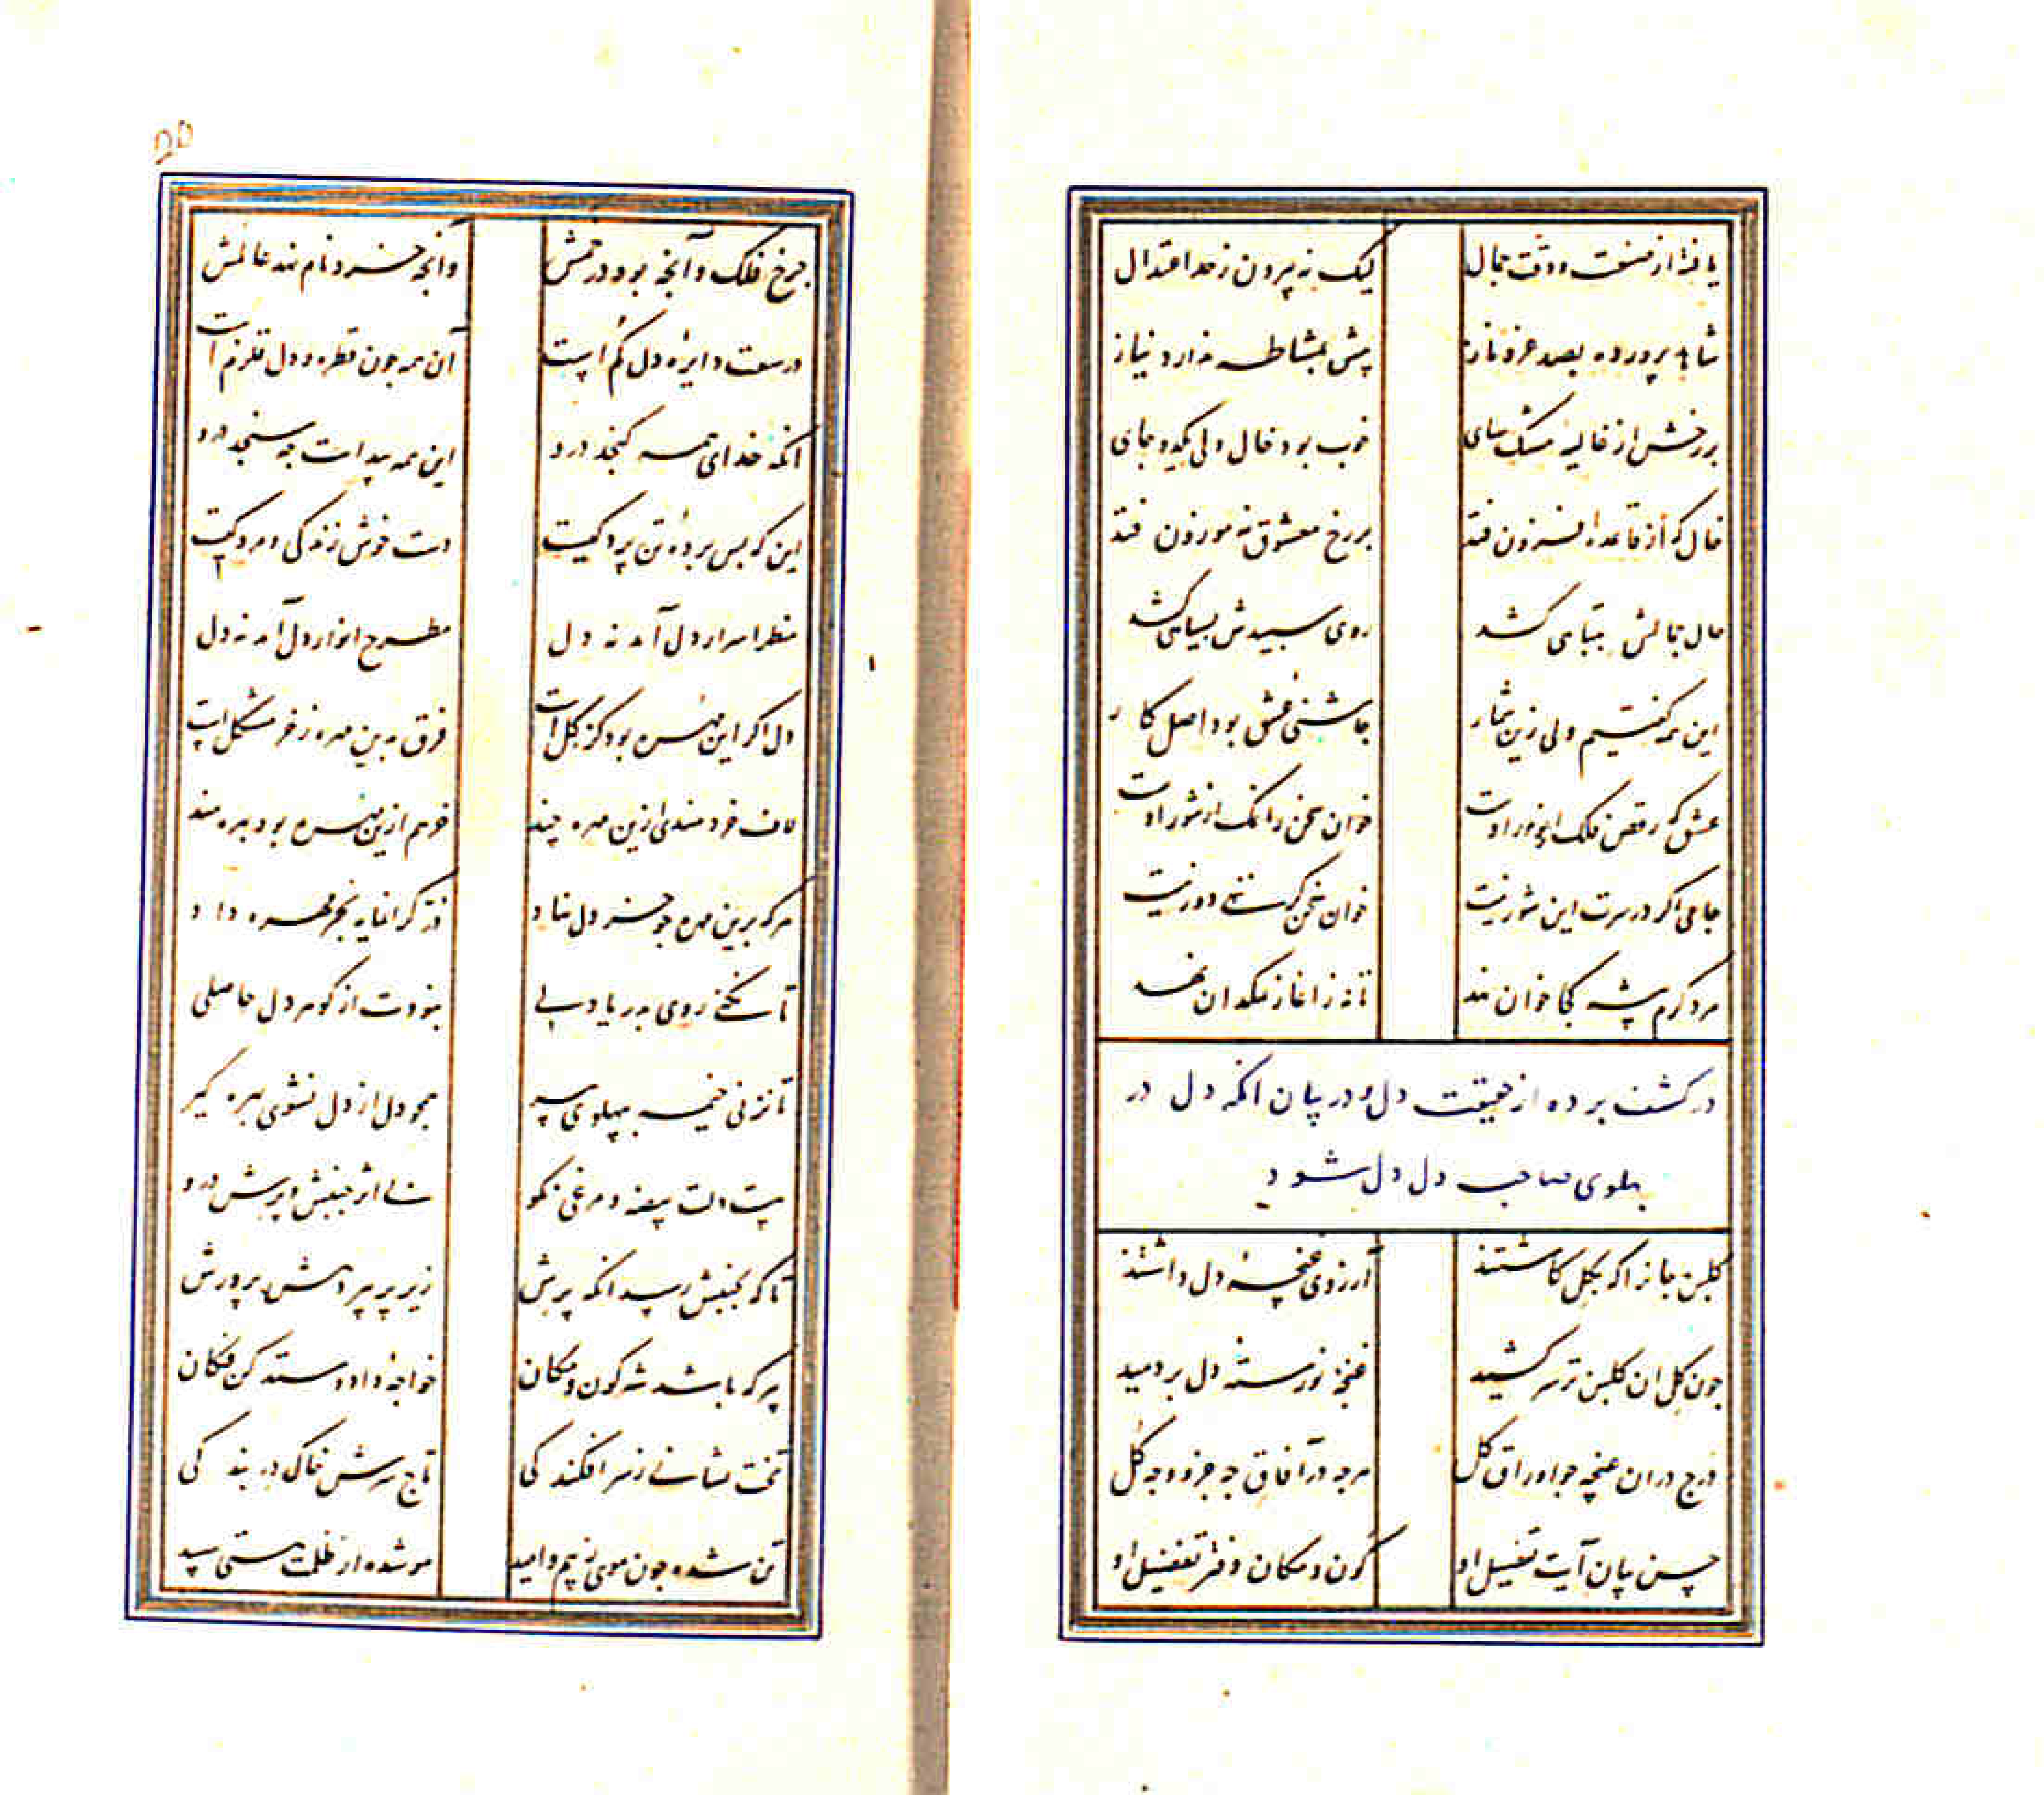 یافته از صنعت و دقت جمال لیک نه بیرون ز حد اعتدال
شاهد پرورده بصد عز و ناز پیش بمشاطه ندارد نیاز
بر رخش از غالیهٔ مشک سای خوب بود خال ولی یکدو جای
خال که از قاعده افزون فتد بر رخ معشوق نه موزون فتد
حال جمالش بتباهی کشد روی سپیدش بسیاهی کشد
این همه گفتیم ولی زین شمار چاشنی عشق بود اصل کار
عشق که رقص فلک از نور اوست خوان سخن را نمک از شور اوست
جامی اگر در سرت این شور نیست خوان سخن گر ننهی دور نیست
مرد کرم پیشه کجا خوان نهد تا نه ز آغاز نمکدان نهد
در کشف پرده از حقیقت دل و در بیان انکه دل در
پهلوی صاحب دل دل شود
گلبن جانرا که بگل کاشتند آرزوی غنچهٔ دل داشتند
چون گل ان گلبن تر سر کشید غنچهٔ نورستهٔ دل بردمید
درج در ان غنچه چو اوراق گل هرچه در آفاق چه جزو و چه کل
حسن بیان آیت تفضیل او کون و مکان دفتر تفصیل او
چرخ فلک و آنچه بود در خمش وآنچه خرد نام نهد عالمش
در سعت دایرهٔ دل کم است آن همه چون قطره و دل قلزم است
انکه خدای همه گنجد درو این همه پیداست چه سنجد درو
این که پس پردهٔ تن پردگیست دست خوش زندگی و مردگیست
منظر اسرار دل آمد نه دل مطرح انوار دل آمد نه دل
دل اگر این مهره بود کز گل است فرق ندین مهره ز خر مشکل است
لاف خردمندی ازین مهره چند خر هم ازین مهره بود بهره مند
هرکه برین مهره چو خر دل نهاد نقد گرانمایه بخر مهره داد
تا نکنی روی بدریا دلی نبودت از گوهر دل حاصلی
تا نزنی خیمه بپهلوی پیر همچو دل از دل نشوی بهره گیر
هست دلت بیضه و مرغی نکو نی اثر جنبش و پرش درو
تا که بجنبش رسد انکه پرش زیر پر پیر دهش پرورش
پیر که باشد شه کون و مکان خواجهٔ داد و ستد کن فکان
تخت نشانی ز سر افکندگی تاج سرش خاک در بندگی
تن شده چون موی ز بیم و امید مو شده از ظلمت هستی سپید